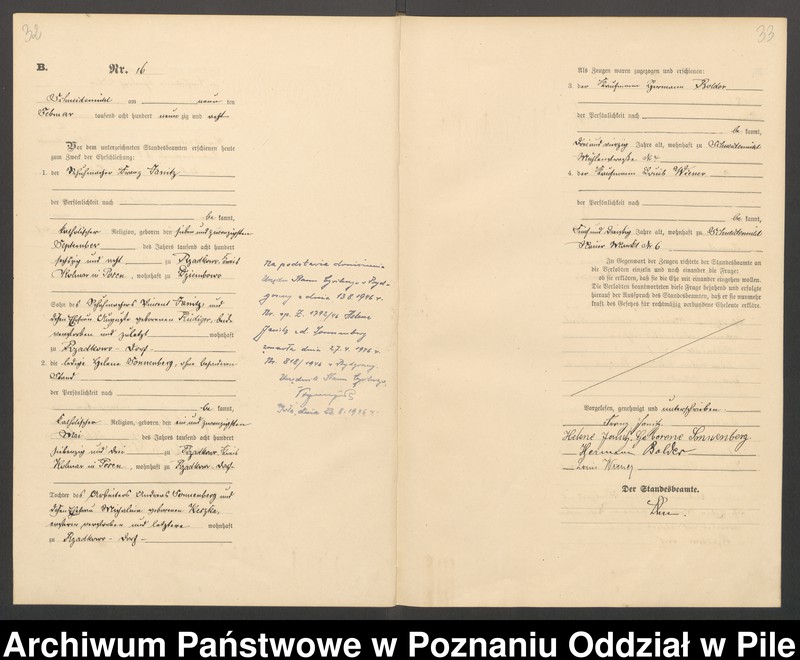 32
B.
Nr. 16
Schneidemühl am neun ten
Februar tausend acht hundert neun zig und acht
Vor dem unterzeichneten Standesbeamten erschienen heute
zum Zweck der Eheschließung:
1. der Schuhmacher Franz Janitz
der Persönlichkeit nach
be kannt,
katholischer Religion, geboren den sieben und zwanzigsten
September des Jahres tausend acht hundert
sechszig und acht zu Rzadkowo, Kreis
Kolmar in Posen, wohnhaft zu Dziembowo
Sohn des Schuhmachers Vincent Janitz und
dessen Ehefrau Auguste geborenen Rüdiger, beide
verstorben und zuletzt wohnhaft
zu Rzadkowo - Dorf
2. die ledige Helene Sonnenberg, ohne besonderen
Stand
der Persönlichkeit nach
be kannt,
katholischer Religion, geboren den ein und zwanzigsten
Mai des Jahres tausend acht hundert
siebenzig und drei zu Rzadkowo, Kreis
Kolmar in Posen, wohnhaft zu Rzadkowo - Dorf
Tochter des Arbeiters Andreas Sonnenberg und
dessen Ehefrau Michalina geborenen
ersterer verstorben und letztere wohnhaft
zu Rzadkowo - Dorf
Na podstawie doniesienia
Urzędu Stanu Cywilnego w Bydg-
goszczy z dnia 13.8 1976 r.
Helene
Janitz z d. Sonnenberg
zmarła dnia 27.4. 1976 r.
Nr. 818/1976 w Bydgoszczy
Urzędnik Stanu Cywilnego
Piła, dnia
33
Als Zeugen waren zugezogen und erschienen:
3. der Kaufmann Hermann Bolder
der Persönlichkeit nach
be kannt,
Drei und vierzig Jahre alt, wohnhaft zu Schneidemühl
Mühlenstraße No 7
4. der Kaufmann Louis Wiener
der Persönlichkeit nach
be kannt,
Fünf und Dreißig Jahre alt, wohnhaft zu Schneidemühl
Neuer Markt No 6
In Gegenwart der Zeugen richtete der Standesbeamte an
die Verlobten einzeln und nach einander die Frage:
ob sie erklären, daß sie die Ehe mit einander eingehen wollen.
Die Verlobten beantworteten diese Frage bejahend und erfolgte
hierauf der Ausspruch des Standesbeamten, daß er sie nunmehr
kraft des Gesetzes für rechtmäßig verbundene Eheleute erkläre.
Vorgelesen, genehmigt und unterschrieben
Franz Janitz
Helene Janitz, Geborene Sonnenberg
Hermann Bolder
Louis Wiener
Der Standesbeamte.
Archiwum Państwowe w Poznaniu Oddział w Pile